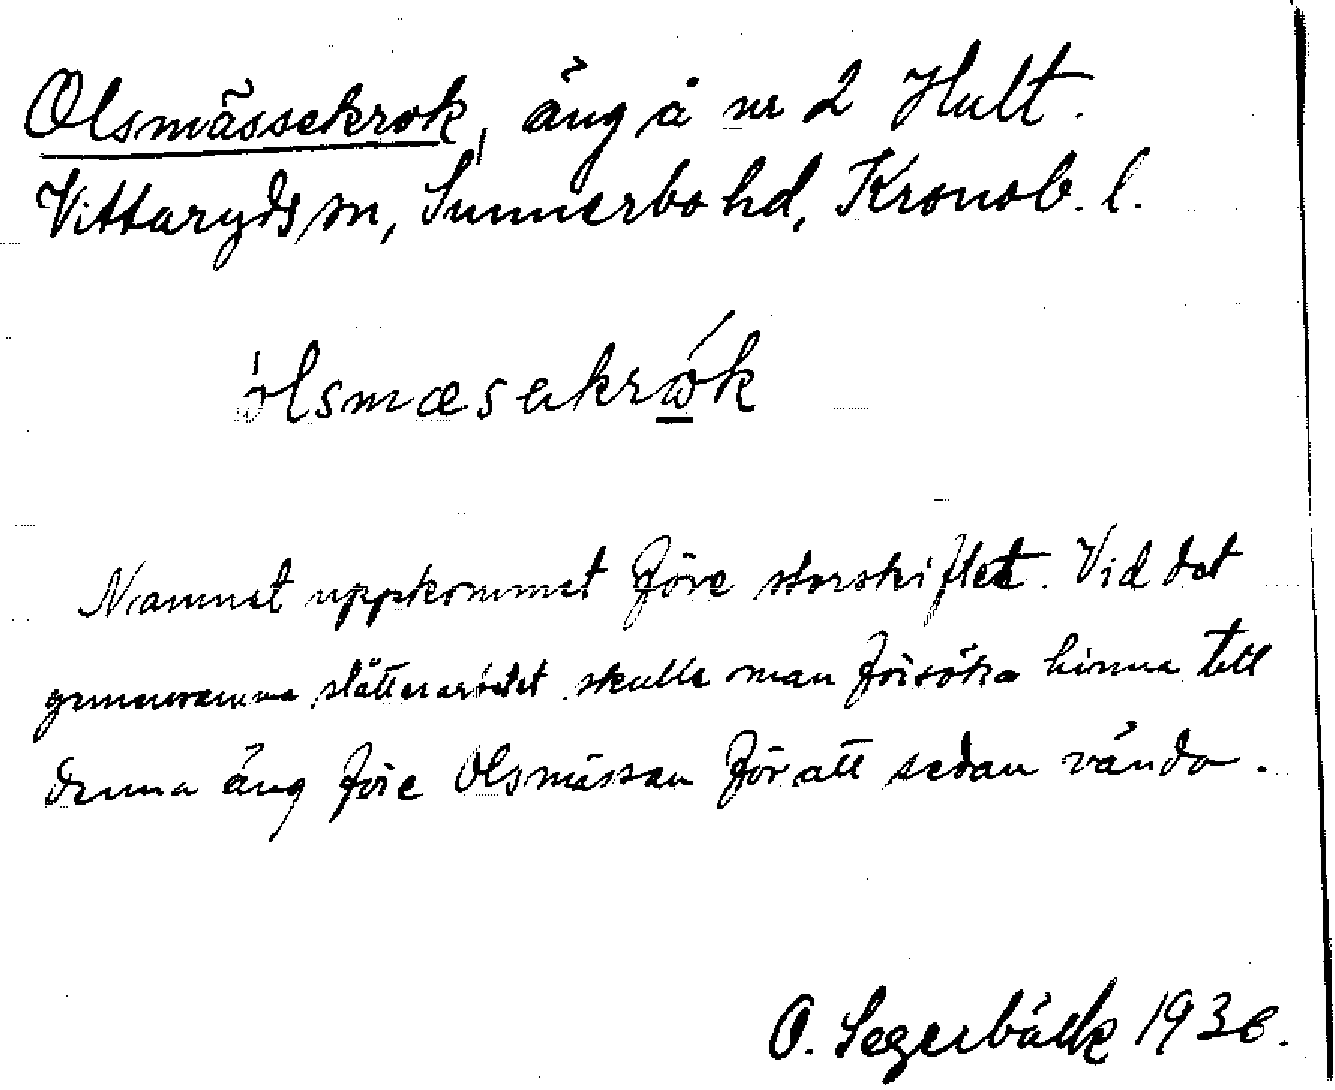 Olsmässekrok, äng å nr 2 Hult.
Vittaryds sn, Sunnerbo hd, Kronob. l.
ólsmæsekrώk
Namnet uppkommet före storskiftet. Vid det
gemensamma slåtterarbetet skulle man försöka hinna till
denna äng före Olsmässan för att sedan vända.
O. Segerbäck 1936.